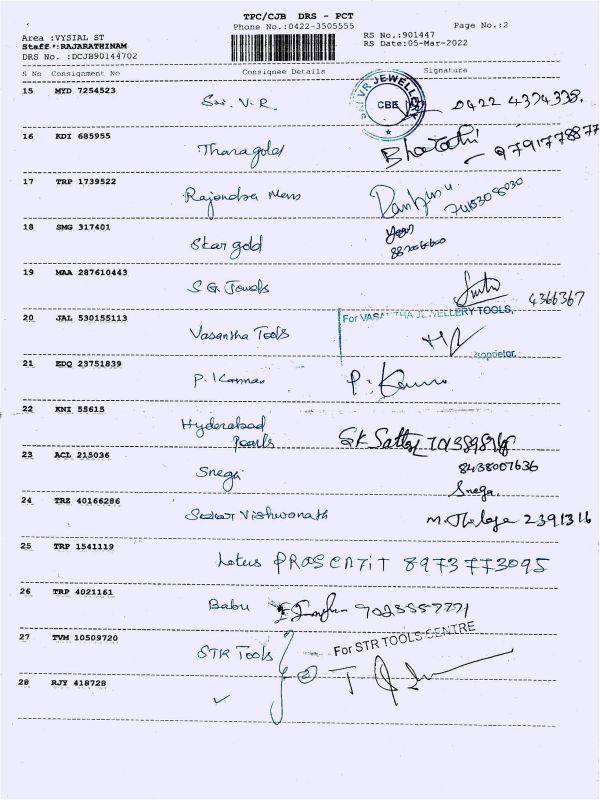 TPC/CJB DRS - PCT
Phone No.:0422-3505555 Page No.:2
Area :VYSIAL ST RS No.:901447
Staff :RAJARATHINAM RS Date:05-Mar-2022
DRS No. :DCJB90144702
S No Consignment No Consignee Details Signature
15 MYD 7254523 Sri. V.R. SRI VR JEWELLERY CBE 0422 4374338.
16 KDI 685955 Tharagold Bharathi - 9791778877
17 TRP 1739522 Rajendra Mens
18 SMG 317401 Star gold
19 MAA 287610443 S G Jewels 4366367
20 JAL 530155113 Vasantha Tools For VASANTHA JEWELLERY TOOLS, Proprietor.
21 EDQ 23751839 P. Kannan P. Kannan
22 KNI 55615 Hyderabad Pearls
23 ACL 215036 Snega 8438007636 Snega.
24 TRZ 40166286 Sekar Vishwanath 2391316
25 TRP 1541119 Lotus PRASENTIT 8973773095
26 TRP 4021161 Babu
27 TVM 10509720 STR Tools For STR TOOLS CENTRE
28 RJY 418728 2